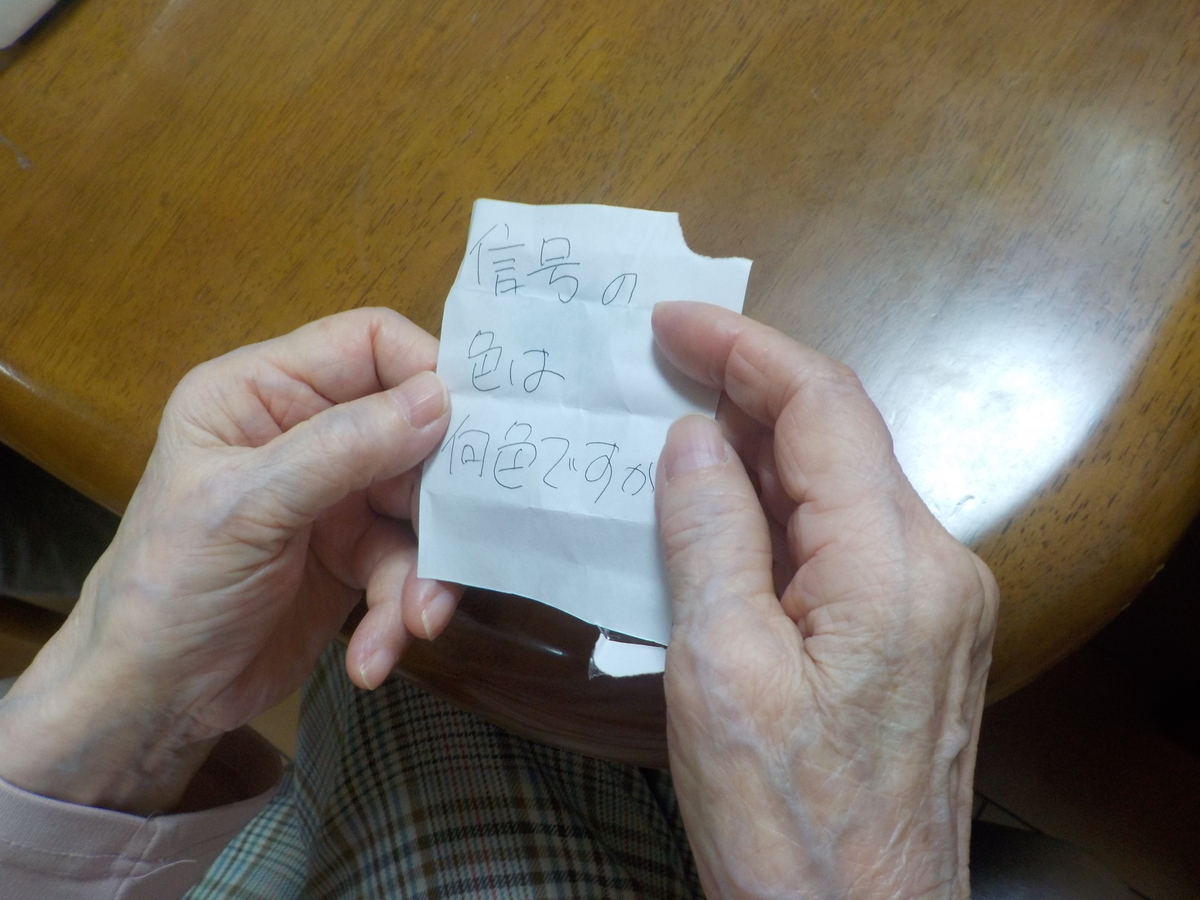 信号の
色は
何色ですか